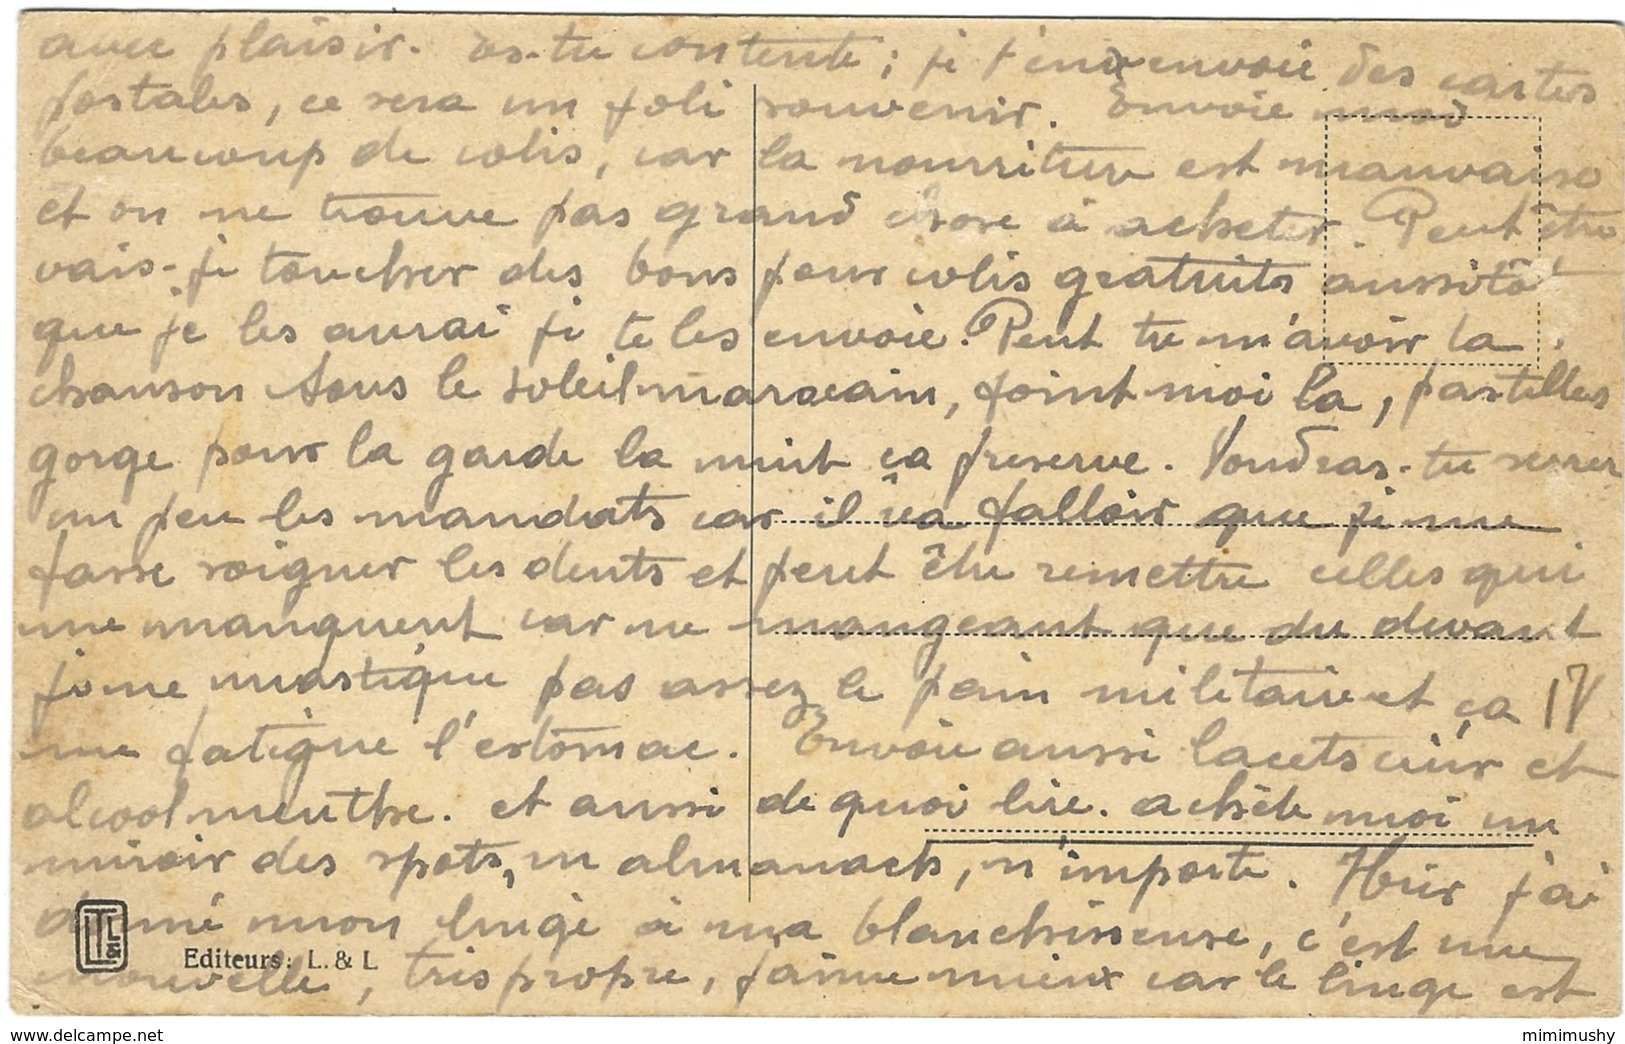 avec plaisir. es-tu contente ; je t'en envoie des cartes
postales, ce sera un joli souvenir. Envoie moi
beaucoup de colis, car la nourriture est mauvaise
et on ne trouve pas grand chose à acheter. Peut être
vais-je toucher des bons pour colis gratuits aussitôt
que je les aurai je te les envoie. Peut tu m'avoir la
chanson Sous le soleil marocain, joint moi la, pastilles
gorge pour la garde la nuit ça preserve. Voudras-tu serrer
un peu les mandats car il va falloir que je me
fasse soigner les dents et peut être remettre celles qui
me manquent car ne mangeant que du devant
je me mastique pas assez le pain militaire et ça
me fatigue l'estomac. Envoie aussi lacets cuir et
alcool menthe. et aussi de quoi lire. achète moi un
miroir des spots, un almanach, n'importe. Hier j'ai
donné mon linge à ma blanchisseuse, c'est une
nouvelle, tris propre, j'aime mieux car le linge est
IV
LL
&
Editeurs : L. & L
mimimushy